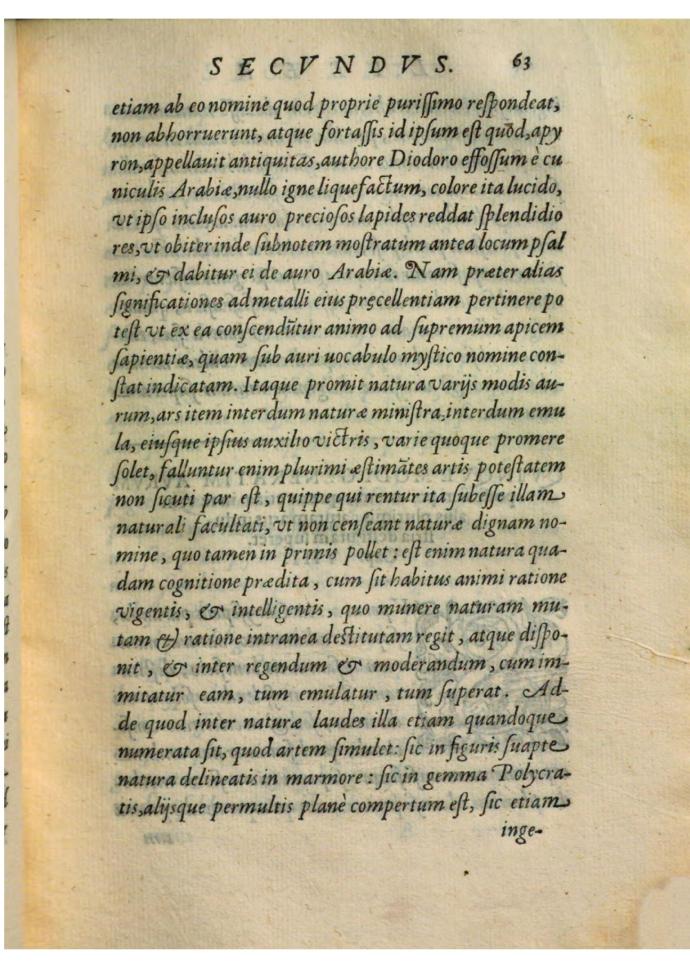 SECVNDVS. 63
etiam ab eo nomine quod proprie purißimo reſpondeat,
non abhorruerunt, atque fortaßis id ipſum eſt quōd, apy
ron, appellauit antiquitas, authore Diodoro effoſſum è cu
niculis Arabiæ, nullo igne liquefactum, colore ita lucido,
vt ipſo incluſos auro precioſos lapides reddat ſplendidio
res, vt obiter inde ſubnotem moſtratum antea locum pſal
mi, & dabitur ei de auro Arabiæ. Nam præter alias
ſignificationes ad metalli eius pręcellentiam pertinere po
teſt vt ex ea conſcendūtur animo ad ſupremum apicem
ſapientiæ, quam ſub auri uocabulo myſtico nomine con-
ſtat indicatam. Itaque promit natura varijs modis au-
rum, ars item interdum naturæ miniſtra, interdum emu
la, eiuſque ipſius auxilio victris, varie quoque promere
ſolet, falluntur enim plurimi æſtimātes artis poteſtatem
non ſicuti par eſt, quippe qui rentur ita ſubeſſe illam
naturali facultati, vt non cenſeant naturæ dignam no-
mine, quo tamen in primis pollet: eſt enim natura qua-
dam cognitione prædita, cum ſit habitus animi ratione
vigentis, & intelligentis, quo munere naturam mu-
tam & ratione intranea deſtitutam regit, atque diſpo-
nit, & inter regendum & moderandum, cum im-
mitatur eam, tum emulatur, tum ſuperat. Ad-
de quod inter naturæ laudes illa etiam quandoque
numerata ſit, quod artem ſimulet: ſic in figuris ſuapte
natura delineatis in marmore: ſic in gemma Polycra-
tis, alijsque permultis planè compertum eſt, ſic etiam
inge-